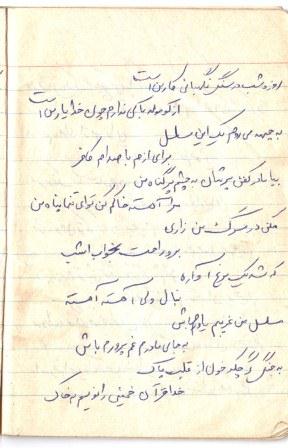 روز و شب در سنگر نگهبانی کار من است
از گلوله باکی ندارم چون خدا یار من است
به جبهه می روم یک این مسلسل
برای رزم با صدام کافر
بیا مادر کفن پوشان به چشم پر گناه من
مرا آهسته خاکم کن توای تنها پناه من
مکن در سوگ من زاری
برو راحت بخواب امشب
که شد یک مرغ آواره
بنال ولی آهسته آهسته
مسلسل من غریبم یاورم باش
به جای مادرم غم پرورم باش
به جنگ گر چکد خون از قلب پاک
خدا قرآن خمینی را نویسم به خاک